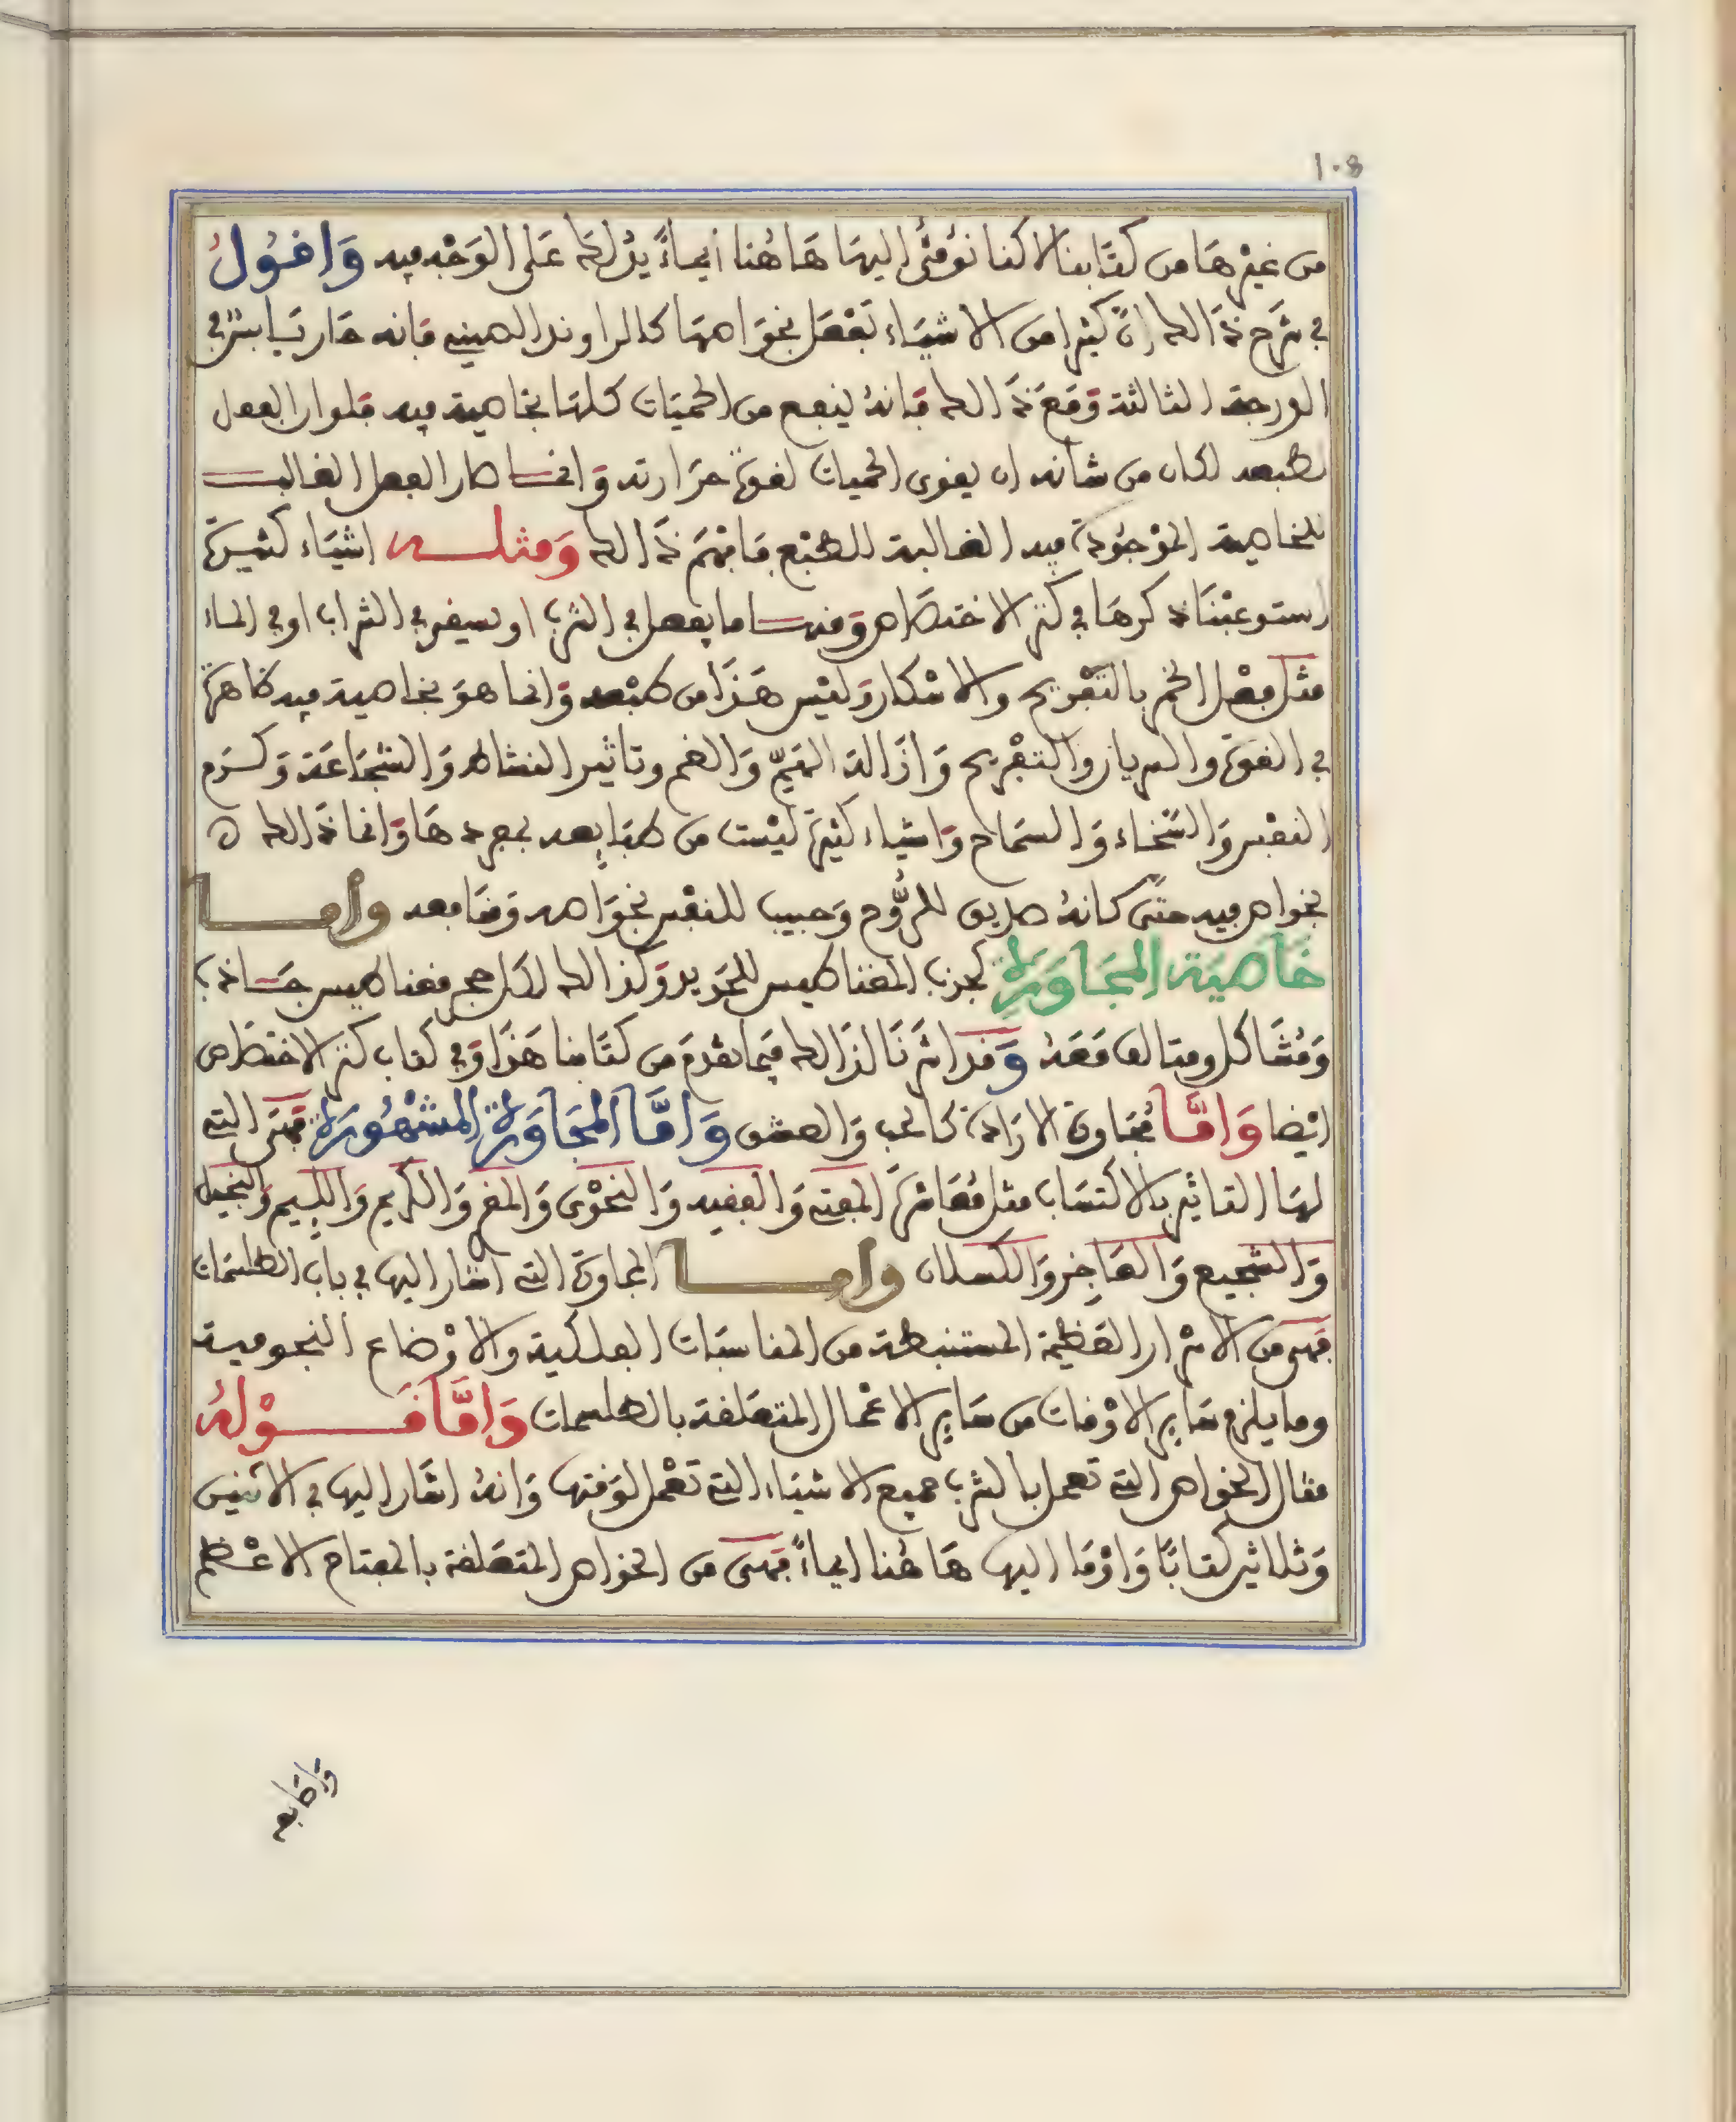 108
من غيرها من كتابنا لاكنا نومئ اليها هاهنا ايماءً يدلك على الوجه فيه وَاقُولُ
في شرح ذالك ان كثيرا من الاشياء تفعل بخواصها كالراوند الصيني فانه حار يابس في
الدرجة الثالثة ومع ذالك فانه ينفع من الحميات كلها بخاصية فيه فلو ان الفعل
لطبعه لكان من شانه ان يقوى الحميات لقوة حرارته وانما صار الفعل الغالب
للخاصية الموجودة فيه الغالبة للطبع فافهم ذالك وَمثلـه اشياء كثيرة
استوعبنا ذكرها في كنز الاختصاص ومنها ما يفعل في الشرب او يسقى في الشراب او في الماء
مثل فعل الخمر بالتفريح والاسكار وليس هذا من طبعه وانما هو بخاصية فيه ظاهرة
في القوة والسريان والتفريح وازالة الهمّ والغم وتاثير النشاط والشجاعة وكرم
النفس والسخاء والسماح واشياء كثيرة ليست من طبايعه بمجردها وانما ذالك ه
بخواص فيه حتى كانهُ صديق للرُّوح وحبيب للنفس بخواصه ومنافعه وامـا
خاصية المجاورة كجذب المغناطيس للحديد وكذالك لكل حجر مغناطيس جـاذب
ومُشاكل ومتالف معهُ وقد اشرنا لذالك فيما تقدم من كتابنا هذا وفي كتاب كنز الاختصاص
ايضا وَامَّـا مجاورة الارادة كالحب والعشق وَامَّا المجَاوَرة المشهُورَة فهي التي
لها التاثير بالاكتساب مثل مُعاشرة المفتي والفقيه والنحْوى والمقر والكريم واللييم والبخيل
والشجيع والعاجز والكسلان وامـا المجاورة التي اشار اليها في باب الطلسمات
فهي من الاسرار العظيمة المستنبطة من المناسبات الفلكية والاوْضاع النجومية
وما يلزم ساير الاوْقات من ساير الاعْمال المتعلقة بالطلسمات وَامَّا قَـوْلهُ
مثال الخواص التي تعمل بالشرب جميع الاشياء التي تعْمل لوقتها وانهُ اشار اليها في الاثنين
وثلاثين كتابًا واوْما اليها هاهُنا ايماءً فهي من الخواص المتعلقة بالمفتاح الاعْـظم